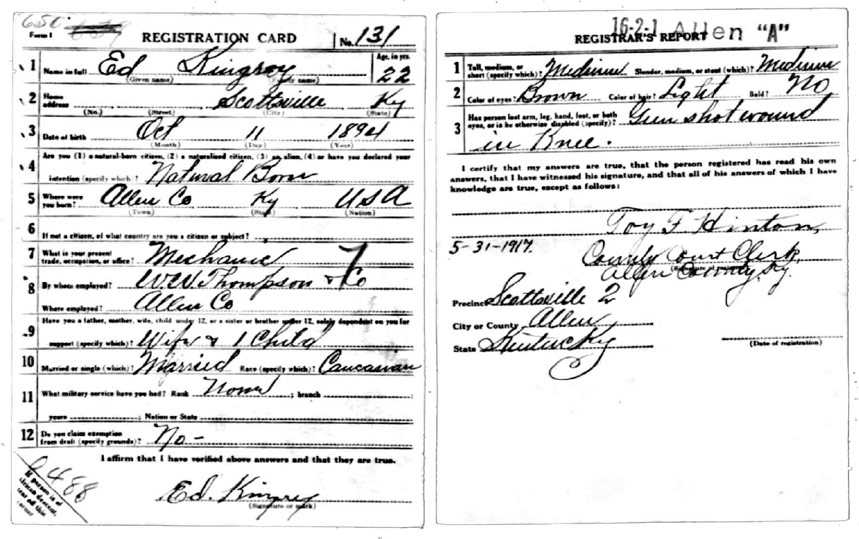 Form 1
REGISTRATION CARD No. 131
1 Name in full Ed Kingrey Age, in yrs. 22
(Given name) (Family name)
2 Home address Scottsville Ky
(No.) (Street) (City) (State)
3 Date of birth Oct 11 1894
(Month) (Day) (Year)
4 Are you (1) a natural-born citizen, (2) a naturalized citizen, (3) an alien, (4) or have you declared your
intention (specify which)? Natural Born
5 Where were you born? Allen Co Ky USA
(Town) (State) (Nation)
6 If not a citizen, of what country are you a citizen or subject?
7 What is your present trade, occupation, or office? Mechanic 7
8 By whom employed? W.W. Thompson & Co
Where employed? Allen Co
9 Have you a father, mother, wife, child under 12, or a sister or brother under 12, solely dependent on you for
support (specify which)? Wife & 1 Child
10 Married or single (which)? Married Race (specify which)? Caucasian
11 What military service have you had? Rank None ; branch
years ; Nation or State
12 Do you claim exemption from draft (specify grounds)? No-
I affirm that I have verified above answers and that they are true.
Ed. Kingrey
(Signature or mark)
If person is of
African descent,
tear off this
corner
16-2-1 Allen "A"
REGISTRAR'S REPORT
1 Tall, medium, or short (specify which)? Medium Slender, medium, or stout (which)? Medium
2 Color of eyes? Brown Color of hair? Light Bald? No
3 Has person lost arm, leg, hand, foot, or both
eyes, or is he otherwise disabled (specify)? Gun shot wound
in Knee.
I certify that my answers are true, that the person registered has read his own
answers, that I have witnessed his signature, and that all of his answers of which I have
knowledge are true, except as follows:
Toy F Hinton,
5-31-1917. County Court Clerk
Allen County, Ky.
Precinct Scottsville 2
City or County Allen
State Kentucky
(Date of registration)